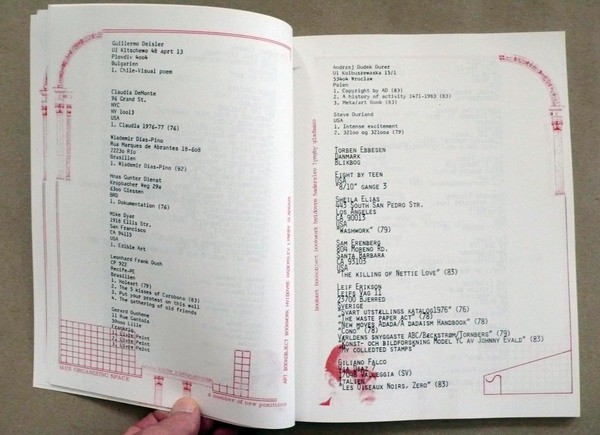 Guillermo Deisler
Ul Kitschewo 48 aprt 13
Plovdiv 4oo4
Bulgarien
1. Chile-Visual poem
Claudia DeMonte
96 Grand St.
NYC
NY loo13
USA
1. Claudia 1976-77 (76)
Wlademir Dias-Pino
Rua Marques de Abrantes 18-6o8
2223o Rio
Brasilien
1. Wlademir Dias-Pino (92)
Hnas Gunter Dienst
Kropbacher Weg 29a
63oo Giessen
BRD
1. Dokumentation (76)
Mike Dyar
2918 Ellis Str.
San Francisco
CA 94113
USA
1. Erible Art
Leonhard Frank Duch
CP 922
Recife-PE
Brasilien
1. Holeart (79)
2. The 5 kisses of Corobona (83)
3. Put your protest on this wall
4. The gathering of old friends
Gerard Duchene
11 Rue Gantois
59ooo Lille
Frankrig
Liste Peint
Liste Peint
Liste Peint
MUN ORGANIZING SPACE
a number of new positions
ART BOOKOBJECT BOOKWORK HVIDOVRE HADERSLEV LYNGBY GLADSAXE
Andrzej Dudek Durer
Ul Kolbuszewska 15/1
534o4 Wroclaw
Polen
1. Copyright by AD (83)
2. A history of activity 1471-1983 (83)
3. Meta/art Book (83)
Steve Durland
USA
1. Intense excitement
2. 32loo og 32looa (79)
Torben Ebbesen
Danmark
Blikbog
Eight by teen
USA
"8/10" gange 3
Sheila Elias
443 South San Pedro Str.
Los Angeles
CA 90013
USA
"Washwork" (79)
Sam Erenberg
804 Moreno Rd.
Santa Barbara
CA 93103
USA
"The killing of Nettie Love" (83)
Leif Erikson
Leifs Väg 11
23700 Bjerred
Sverige
"Svart utställings katalog1976" (76)
"The waste paper act" (78)
"New moves Adada/A dadaism handbook" (78)
"Cono" (78)
Världens snyggaste ABC/Backström/Törnberg" (79)
"Konst- och bildforskning Model TC av Johnny Evald" (83)
"My collected stamps"
Giliano Falco
Via Diaz
17048 Valleggia (SV)
Italien
"Les Oiseaux Noirs, Zero" (83)
bookart bookobject bookwork hvidovre haderslev lyngby gladsaxe